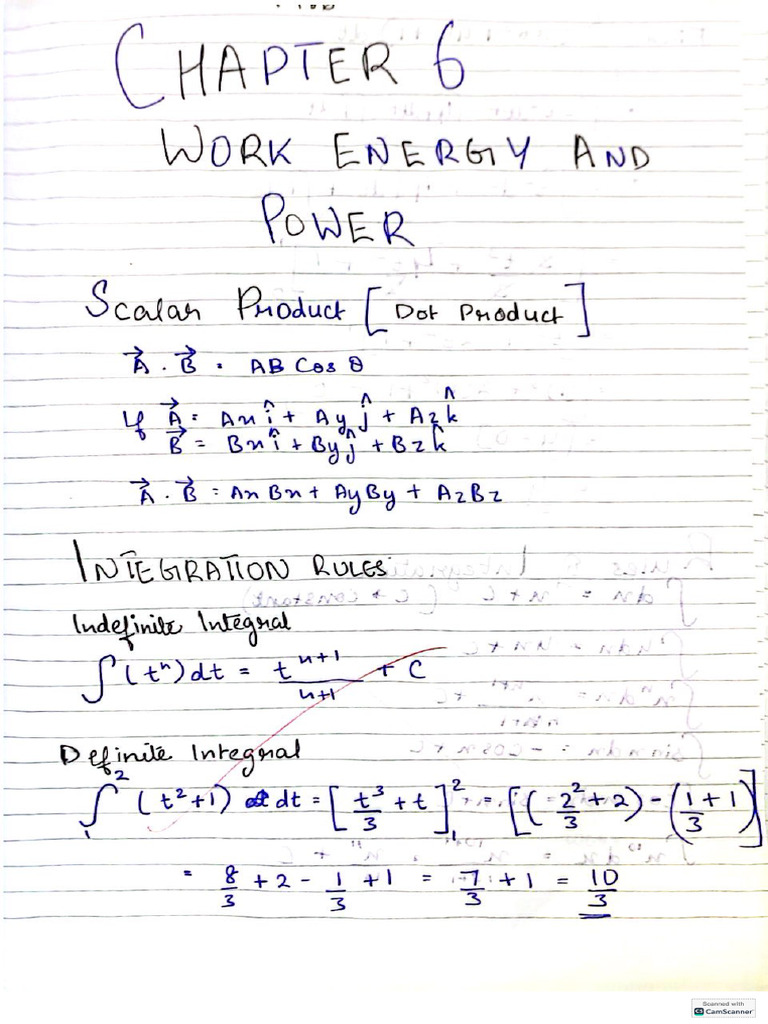 CHAPTER 6
WORK ENERGY AND
POWER
Scalar Product [Dot Product]
A⃗ . B⃗ = AB Cos θ
If A⃗ = Ax î + Ay ĵ + Az k̂
B⃗ = Bx î + By ĵ + Bz k̂
A⃗ . B⃗ = AxBx + AyBy + AzBz
INTEGRATION RULES
Indefinite Integral
∫(tⁿ)dt = tⁿ⁺¹/n+1 + C
Definite Integral
∫₁² (t²+1) dt = [t³/3 + t]₁² = [(2²/3 + 2) - (1/3 + 1)]
= 8/3 + 2 - 1/3 + 1 = 7/3 + 1 = 10/3
Scanned with
CamScanner